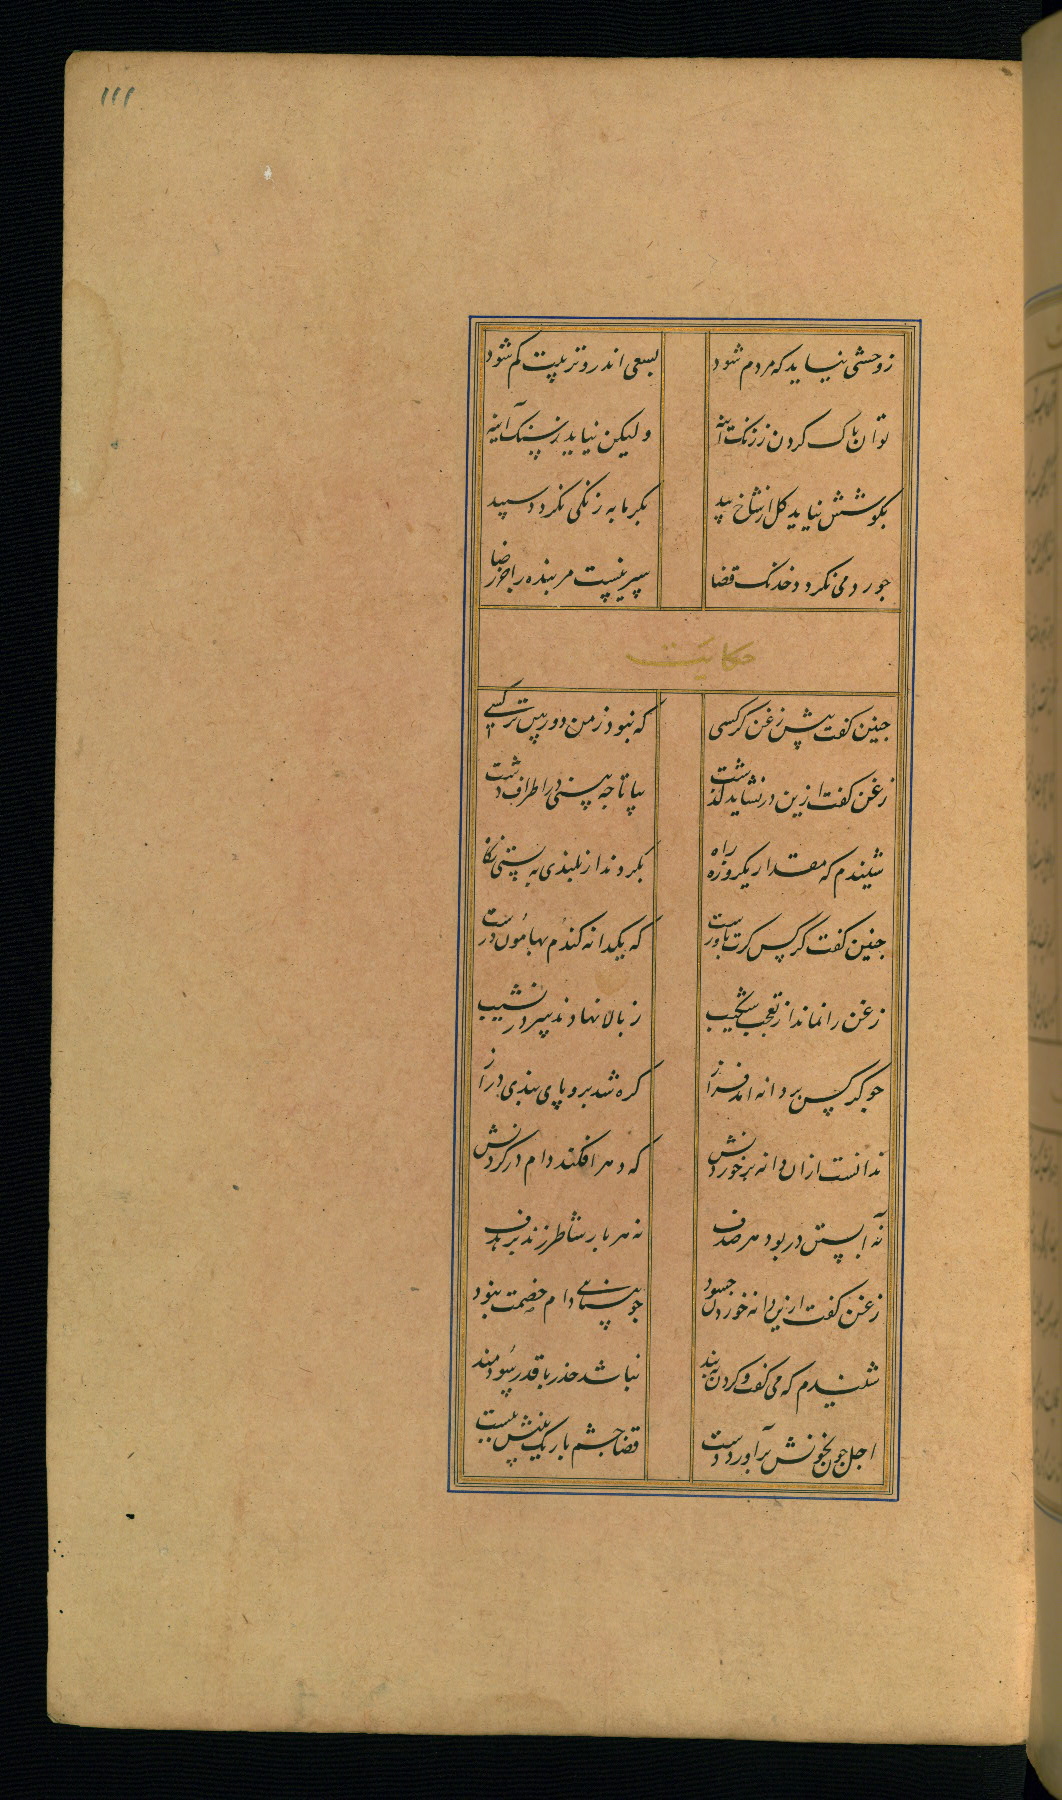 ١١١
زوحشی نیاید که مردم شود بسعی اندرو تربیت گم شود
توان پاک کردن ز زنک آینه ولیکن نیاید ز سنک آینه
بکوشش نیاید کل از شاخ بید نکرمابه زنکی نکردد سپید
جو رد می نکردد خدنک قضا سپر نیست مر بنده را جز رضا
حکایت
جنین کفت پیش زغن کرکسی که نبود ز من دور بین تر کسی
زغن کفت ازین در نشاید کذشت بیا تا جه بینی در اطراف دشت
شنیدم که مقدار یکروزه راه بکردند از بلندی به پستی نکاه
جنین کفت کرکس کرت باورست که یکدانه کندم بهامون درست
زغن را نماند از تعجب شکیب ز بالا نهادند سر در نشیب
جو کرکس بر دانه امد فراز کره شد برو پای بندی دراز
ندانست ازان دانه بر خوردنش که دهر افکند دام در کردنش
نه آبستن در بود هر صدف نه هر بار شاطر زند بر هدف
زغن کفت ازین دانه خوردن جسود جو بینایی دام خصمت نبود
شنیدم که می کفت و کردن به بند نباشد حذر با قدر سودمند
اجل جون بخونش برآورد دست قضا جشم باریک بینش ببست